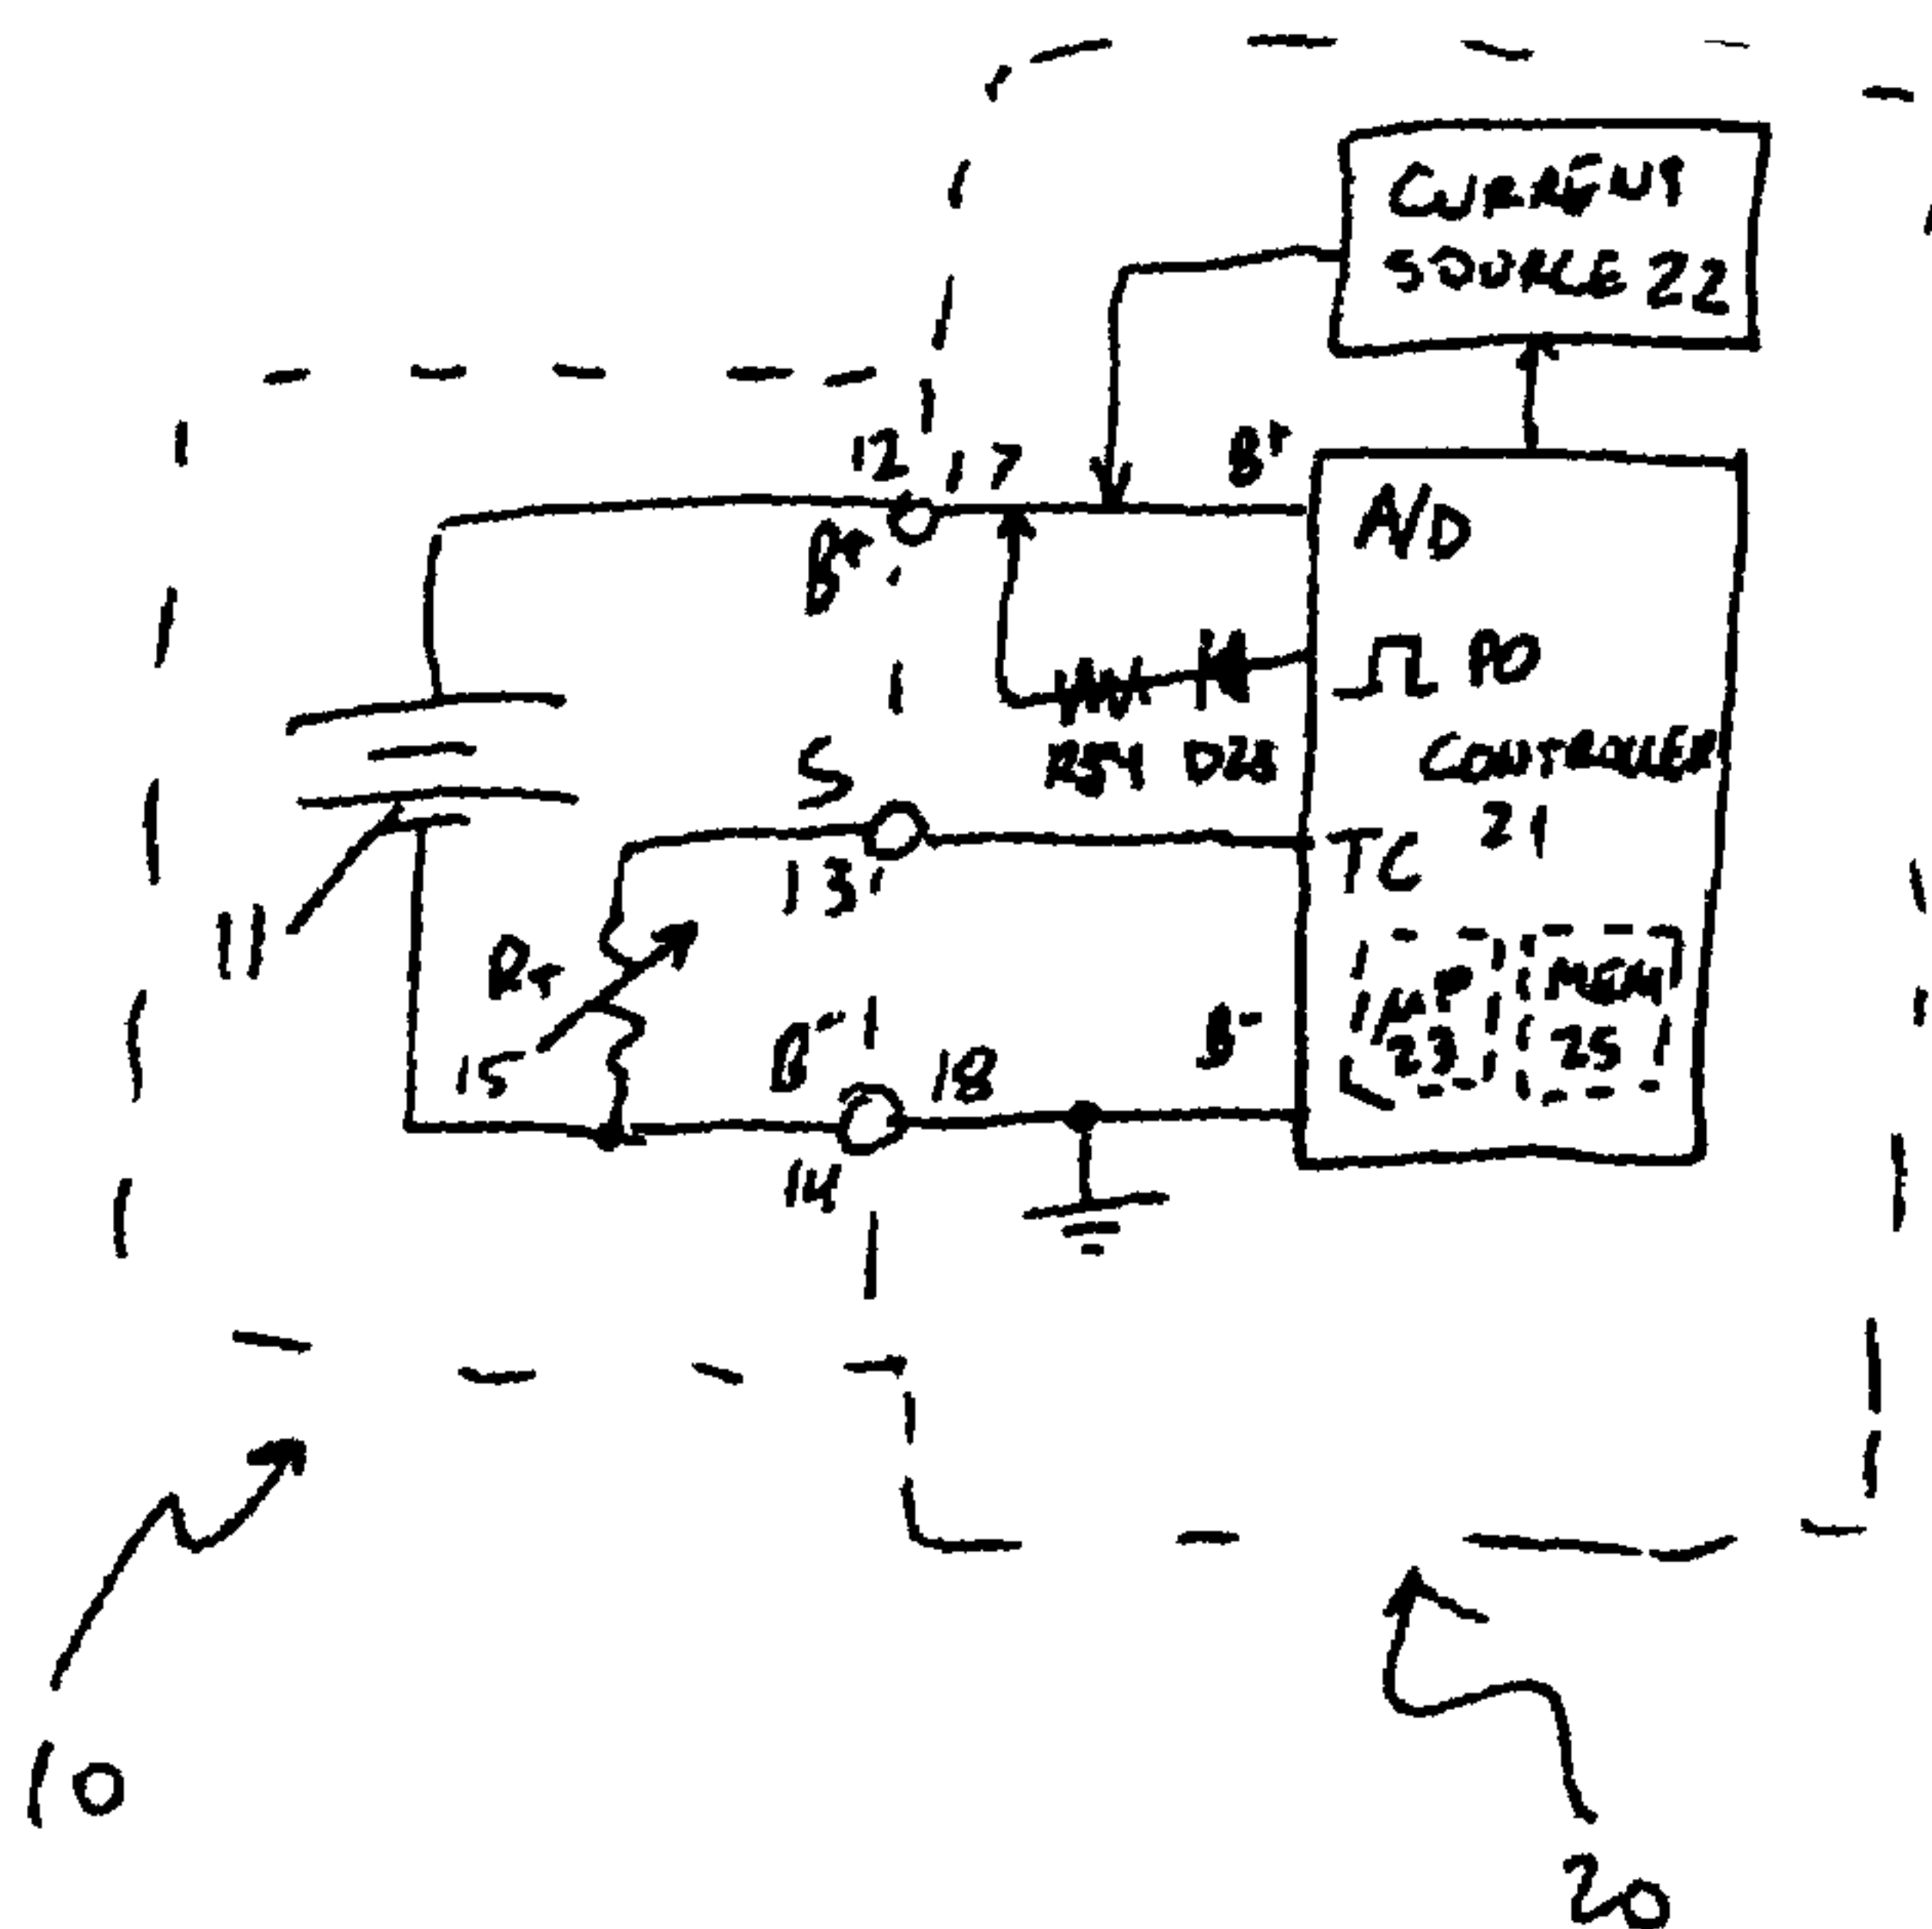 CURRENT
SOURCE 22
12
17
B+
B+
A/D
PD
R54 D28
CONTROLLER
21
S
13
TC
11
RT
15
μP
23
MEM
25
B-
18
B-
14
10
20